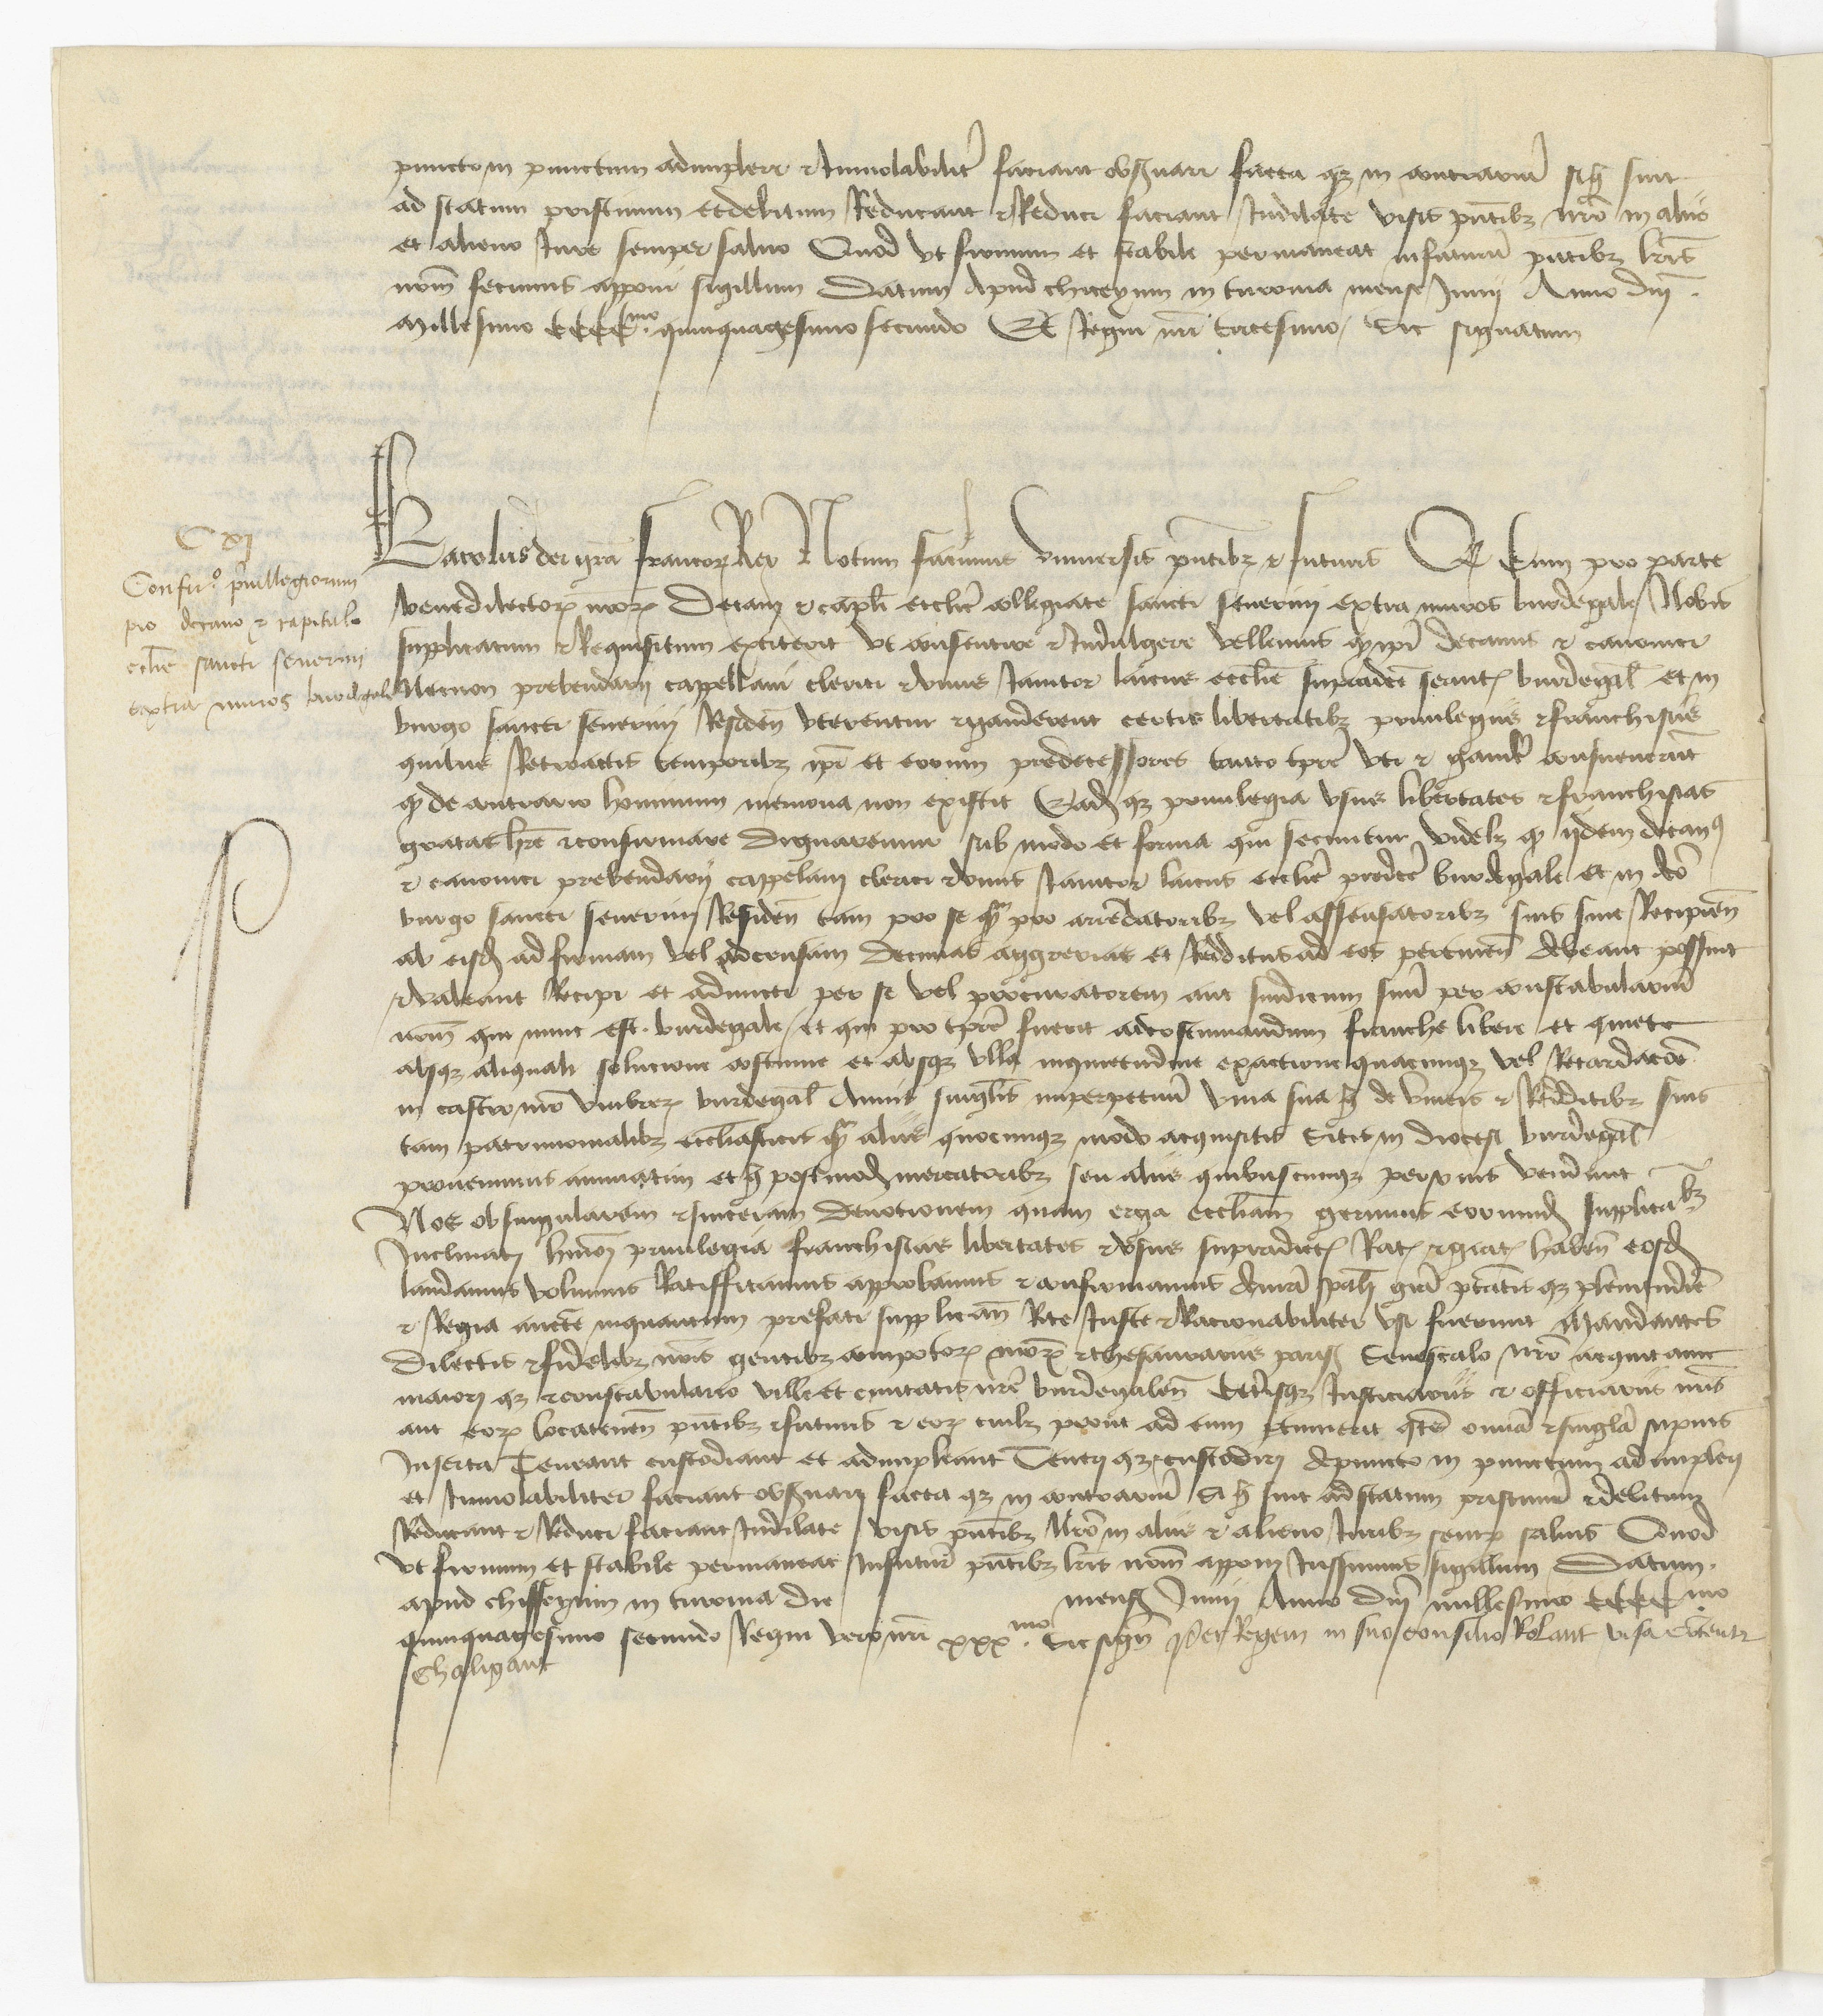 puncto in punctum adimplere et Inviolabiliter faciant observari facta que in contrarium si que sint
ad statum pristinum et debitum Reducant et Reduci faciant Indilate visis presentibus nostro in aliis
et alieno Iure semper salvo Quod ut firmum et stabile permaneat in futurum presentibus litteris
nostrum fecimus apponi sigillum Datum Apud chiceyum in turonia mense Junii Anno domini
Millesimo CCCCmo quinquagesimo secundo Et Regni nostri tricesimo Sic signatum
CXI
Confirmo privillegiorum
pro decano et capitulo
ecclesie sancti severini
extra muros burdegale
Karolus dei gracia francorum Rex Notum facimus Universis presentibus et futuris Quod Cum pro parte
bene dilectorum nostrorum Decani et capituli ecclesie collegiate sancti severini extra muros burdegale Nobis
supplicatum et Requisitum extiterit ut consentire et Indulgere vellemus quod ipsi decanus et canonici
Necnon prebendarii cappellani clerici et unus Janitor laicus ecclesie supradicte servientes burdegale et in
burgo sancti severini Residentes uterentur et gauderent certis libertatibus privilegiis et franchisiis
quibus Retroactis temporibus ipsi et eorum predecessores tanto tempore uti et gaudere consueverunt
quod de contrario hominum memoria non existit Eademque privilegia usus libertates et franchisias
gratas habere et confirmare Dignaremur sub modo et forma qui secuntur videlicet quod iidem decanus
et canonici prebendarii cappellani clerici et unus Janitor laicus ecclesie predicte burdegale et in dicto
burgo sancti severini Residentes tam pro se quam pro arrendatoribus vel assensatoribus suis sive Recipientibus
ab eisdem ad firmam vel ad censam decimas aggrerias et Redditus ad eos pertinentes debeant possint
et valeant Recipi et admitti per se vel procuratorem aut sindicum suum per constabularium
nostrum qui nunc est burdegale et qui pro tempore fuerit ad costumandum franche libere et quiete
absque aliquali solucione costume et absque ulla inquietudine exactione quacunque vel Retardacione
in castro nostro umbrerie burdegale Annis singulis imperpetuum vina sua que de vineis et Redditibus suis
tam patrimonialibus ecclesiasticis quam aliis quocunque modo acquisitis sitis in diocesi burdegale
proveniunt annuatim et que postmodum mercatoribus seu aliis quibuscunque personis vendunt
Nos ob singularem et sinceram devotionem quam erga ecclesiam gerimus eorumdem supplicantibus
Inclinati huiusmodi privilegia franchisias libertates et usus supradictos Ratos et gratos habentes eosdem
laudamus volumus Ratifficamus approbamus et confirmamus de nostra speciali gracia potestatisque plenitudine
et Regia auctoritate inquantum prefati supplicantes Rite Iuste et Racionabiliter usi fuerunt Mandantes
Dilectis et fidelibus nostris gentibus compotorum nostrorum et thesaurariis parisius Senescalo nostro acquitanie
maiori que et constabulario ville et civitatis nostre burdegalensis Ceterisque Iusticiariis et officiariis nostris
aut eorum locatenentibus presentibus et futuris et eorum cuilibet prout ad eum pertinuerit quatenus omnia et singula superius
Inserta Teneant custodiant et adimpleant Teneri que et custodiri de puncto in punctum adimpleri
et Inviolabiliter faciant observari facta que in contrarium si que sint ad statum pristinum et debitum
Reducant et Reduci faciant Indilate visis presentibus Nostro in aliis et alieno Iuribus semper salvis Quod
ut firmum et stabile permaneat In futurum presentibus litteris nostrum apponi Iussimus sigillum Datum
apud chisseyum in turonia die mensis Junii Anno domini millesimo CCCCmo
quinquagesimo secundo Regni vero nostri xxxmo. Sic signatum Per Regem in suo consilio Rolant visa contentor
Chaligant